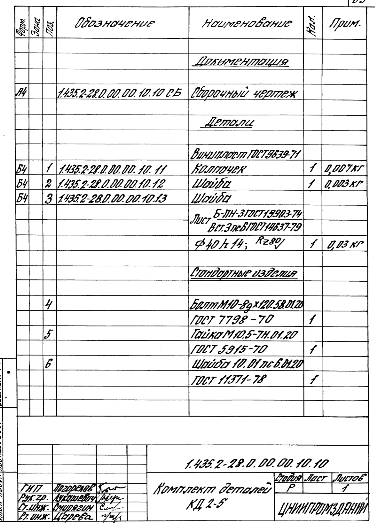 Форм. Зона Поз. Обозначение Наименование Кол. Прим.
Документация
А4 1.435.2-28.0.00.00.10.10 СБ Сборочный чертеж
Детали
Винипласт ГОСТ 9639-71
Б4 1 1.435.2-28.0.00.00.10.11 Колпачек 1 0,007 кг
Б4 2 1.435.2-28.0.00.00.10.12 Шайба 1 0,003 кг
Б4 3 1.435.2-28.0.00.00.10.13 Шайба
Лист Б-ПН-3 ГОСТ 19903-74
Вст.3 пс 6 ГОСТ 14637-79
Ф40 h14; Rz80 1 0,03 кг
Стандартные изделия
4 Болт М10-8g×120.58.01.20
ГОСТ 7798-70 1
5 Гайка М10.5-7Н.01.20
ГОСТ 5915-70 1
6 Шайба 10.01 пс 6.01.20
ГОСТ 11371-78 1
1.435.2-28.0.00.00.10.10
Комплект деталей
КД 2-5
Стадия Лист Листов
Р 1
ГИП
Рук.гр.
Ст.инж.
Ст.инж. Царева
ЦНИИПРОМЗДАНИЙ